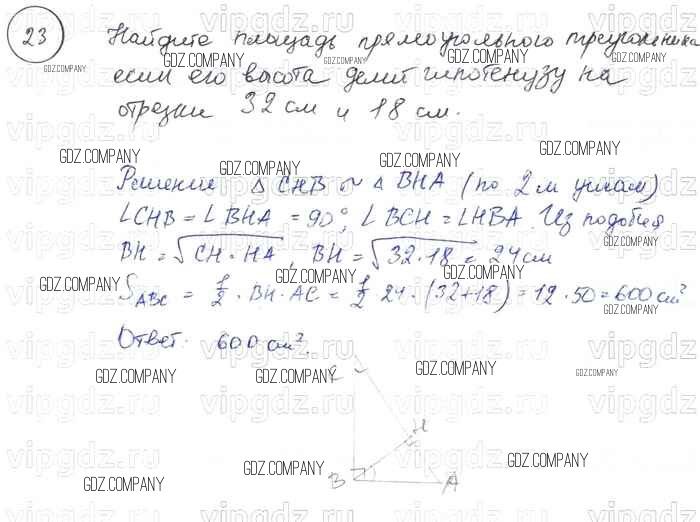 23
Найдите площадь прямоугольного треугольника
если его высота делит гипотенузу на
отрезки 32 см и 18 см.
Решение △ CHB ~ △ BHA (по 2м углам)
∠CHB = ∠BHA = 90°, ∠BCH = ∠HBA. Из подобия
BH = √CH · HA, BH = √32·18 = 24 см
S_ABC = 1/2 · BH · AC = 1/2 24 · (32+18) = 12 · 50 = 600 см²
Ответ: 600 см².
H
B A
vipgdz.ru
GDZ.COMPANY